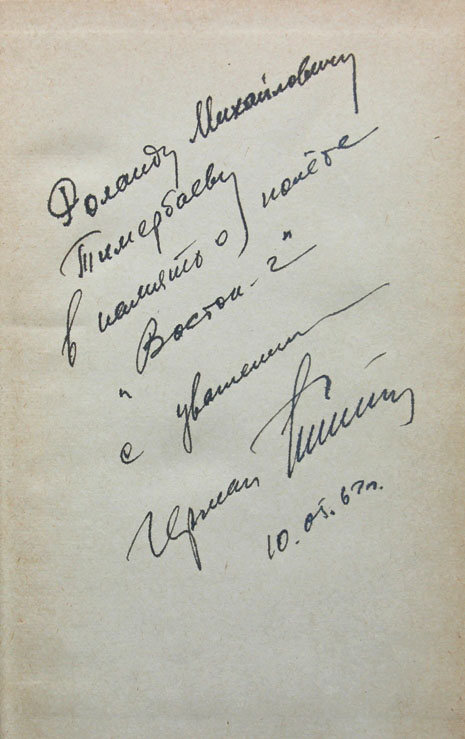 Роланду Михайловичу
Тимербаеву
в память о полёте
"Восток-2"
с уважением
Герман Титов
10.05.67г.